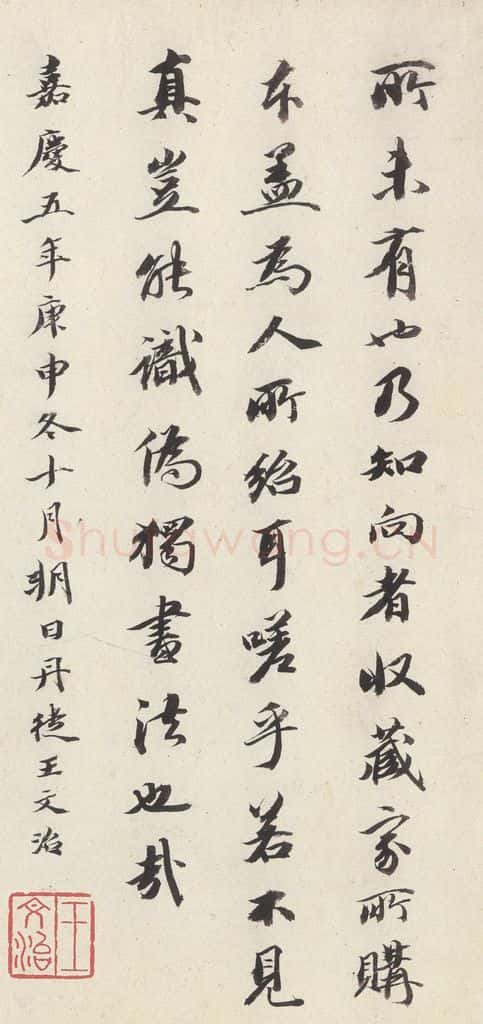 所未有也乃知向者收藏家所購
本盖為人所紿耳嗟乎若不見
真豈能識偽獨書法也哉
嘉慶五年庚申冬十月朔日丹徒王文治
王文治
Shufawang.CN